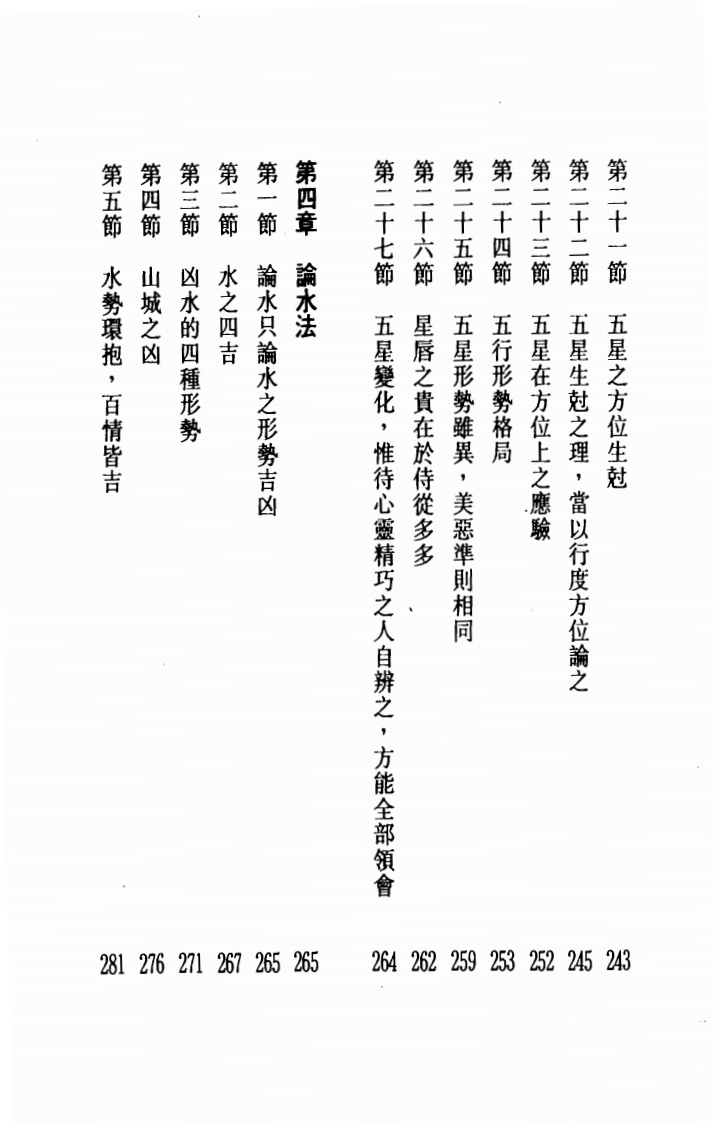 第二十一節　五星之方位生尅　243
第二十二節　五星生尅之理，當以行度方位論之　245
第二十三節　五星在方位上之應驗　252
第二十四節　五行形勢格局　253
第二十五節　五星形勢雖異，美惡準則相同　259
第二十六節　星唇之貴在於侍從多多　262
第二十七節　五星變化，惟待心靈精巧之人自辨之，方能全部領會　264
第四章　論水法　265
第一節　論水只論水之形勢吉凶　265
第二節　水之四吉　267
第三節　凶水的四種形勢　271
第四節　山城之凶　276
第五節　水勢環抱，百情皆吉　281